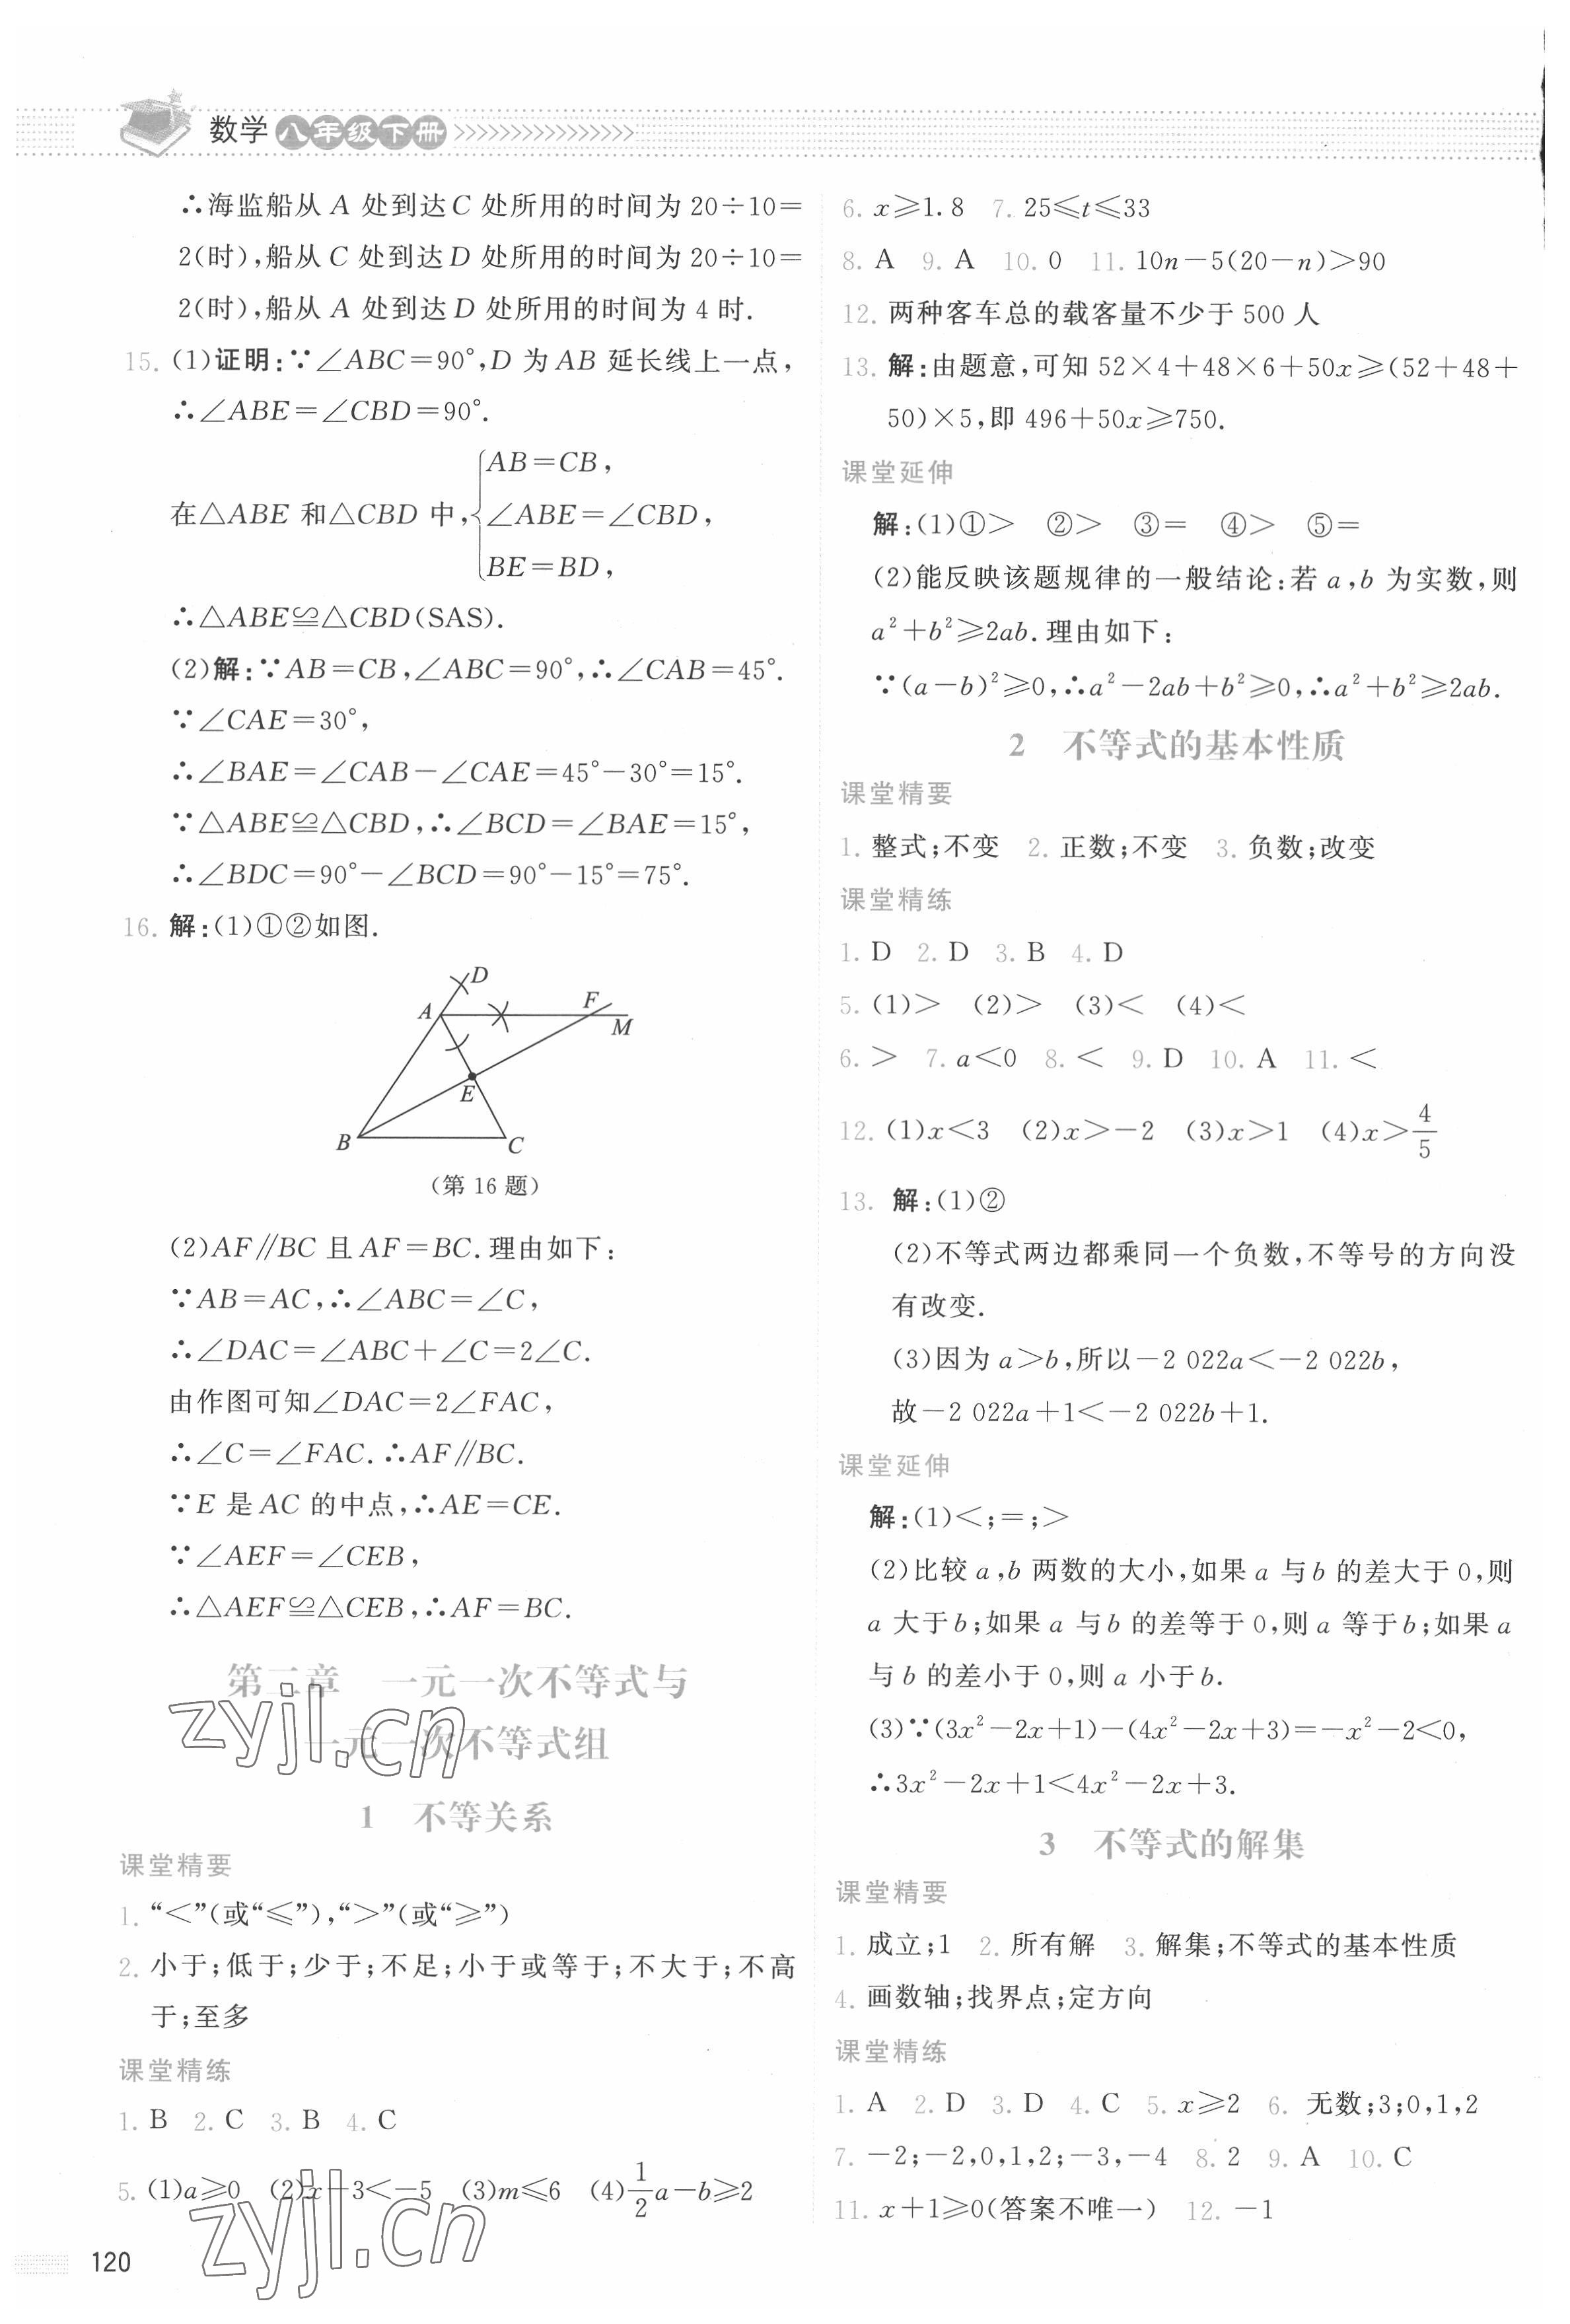 数学八年级下册
∴海监船从 A 处到达 C 处所用的时间为 20÷10=
2(时),船从 C 处到达 D 处所用的时间为 20÷10=
2(时),船从 A 处到达 D 处所用的时间为 4 时.
15. (1)证明:∵∠ABC=90°,D 为 AB 延长线上一点,
∴∠ABE=∠CBD=90°.
AB=CB,
在△ABE 和△CBD 中,{∠ABE=∠CBD,
BE=BD,
∴△ABE≌△CBD(SAS).
(2)解:∵AB=CB,∠ABC=90°,∴∠CAB=45°.
∵∠CAE=30°,
∴∠BAE=∠CAB-∠CAE=45°-30°=15°.
∵△ABE≌△CBD,∴∠BCD=∠BAE=15°,
∴∠BDC=90°-∠BCD=90°-15°=75°.
16. 解:(1)①②如图.
D
A
F
M
E
B
C
(第 16 题)
(2)AF∥BC 且 AF=BC.理由如下:
∵AB=AC,∴∠ABC=∠C,
∴∠DAC=∠ABC+∠C=2∠C.
由作图可知∠DAC=2∠FAC,
∴∠C=∠FAC.∴AF∥BC.
∵E 是 AC 的中点,∴AE=CE.
∵∠AEF=∠CEB,
∴△AEF≌△CEB,∴AF=BC.
第二章 一元一次不等式与
一元一次不等式组
zyjl.cn
1 不等关系
课堂精要
1. “<”(或“≤”),“>”(或“≥”)
2. 小于;低于;少于;不足;小于或等于;不大于;不高
于;至多
课堂精练
1. B 2. C 3. B 4. C
5. (1)a≥0 (2)x+3<-5 (3)m≤6 (4)1/2a-b≥2
zyjl.cn
120
6. x≥1.8 7. 25≤t≤33
8. A 9. A 10. 0 11. 10n-5(20-n)>90
12. 两种客车总的载客量不少于 500 人
13. 解:由题意,可知 52×4+48×6+50x≥(52+48+
50)×5,即 496+50x≥750.
课堂延伸
解:(1)①> ②> ③= ④> ⑤=
(2)能反映该题规律的一般结论:若 a,b 为实数,则
a²+b²≥2ab.理由如下:
∵(a-b)²≥0,∴a²-2ab+b²≥0,∴a²+b²≥2ab.
2 不等式的基本性质
课堂精要
1. 整式;不变 2. 正数;不变 3. 负数;改变
课堂精练
1. D 2. D 3. B 4. D
5. (1)> (2)> (3)< (4)<
6. > 7. a<0 8. < 9. D 10. A 11. <
12. (1)x<3 (2)x>-2 (3)x>1 (4)x>4/5
13. 解:(1)②
(2)不等式两边都乘同一个负数,不等号的方向没
有改变.
(3)因为 a>b,所以-2 022a<-2 022b,
故-2 022a+1<-2 022b+1.
课堂延伸
解:(1)<;=;>
(2)比较 a,b 两数的大小,如果 a 与 b 的差大于 0,则
a 大于 b;如果 a 与 b 的差等于 0,则 a 等于 b;如果 a
与 b 的差小于 0,则 a 小于 b.
(3)∵(3x²-2x+1)-(4x²-2x+3)=-x²-2<0,
∴3x²-2x+1<4x²-2x+3.
3 不等式的解集
课堂精要
1. 成立;1 2. 所有解 3. 解集;不等式的基本性质
4. 画数轴;找界点;定方向
课堂精练
1. A 2. D 3. D 4. C 5. x≥2 6. 无数;3;0,1,2
7. -2;-2,0,1,2;-3,-4 8. 2 9. A 10. C
11. x+1≥0(答案不唯一) 12. -1